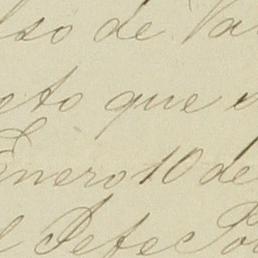 so de Va
to que
Enero 10 de
el Jefe Po